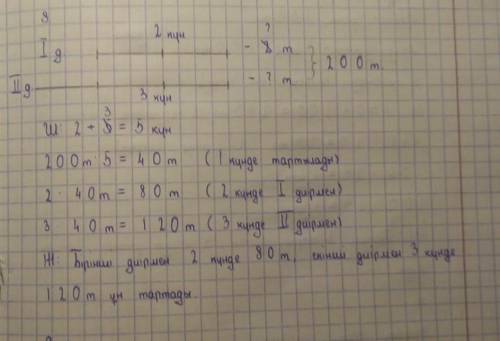 9
2 күн
I д - ? т
II д - ? т } 200 т.
3 күн
Ш: 2 + 3 = 5 күн
200 т : 5 = 40 т (1 күнде тартылады)
2 · 40 т = 80 т (2 күнде I диірмен)
3 · 40 т = 120 т (3 күнде II диірмен)
Ж: Бірінші диірмен 2 күнде 80 т, екінші диірмен 3 күнде
120 т ұн тартады.